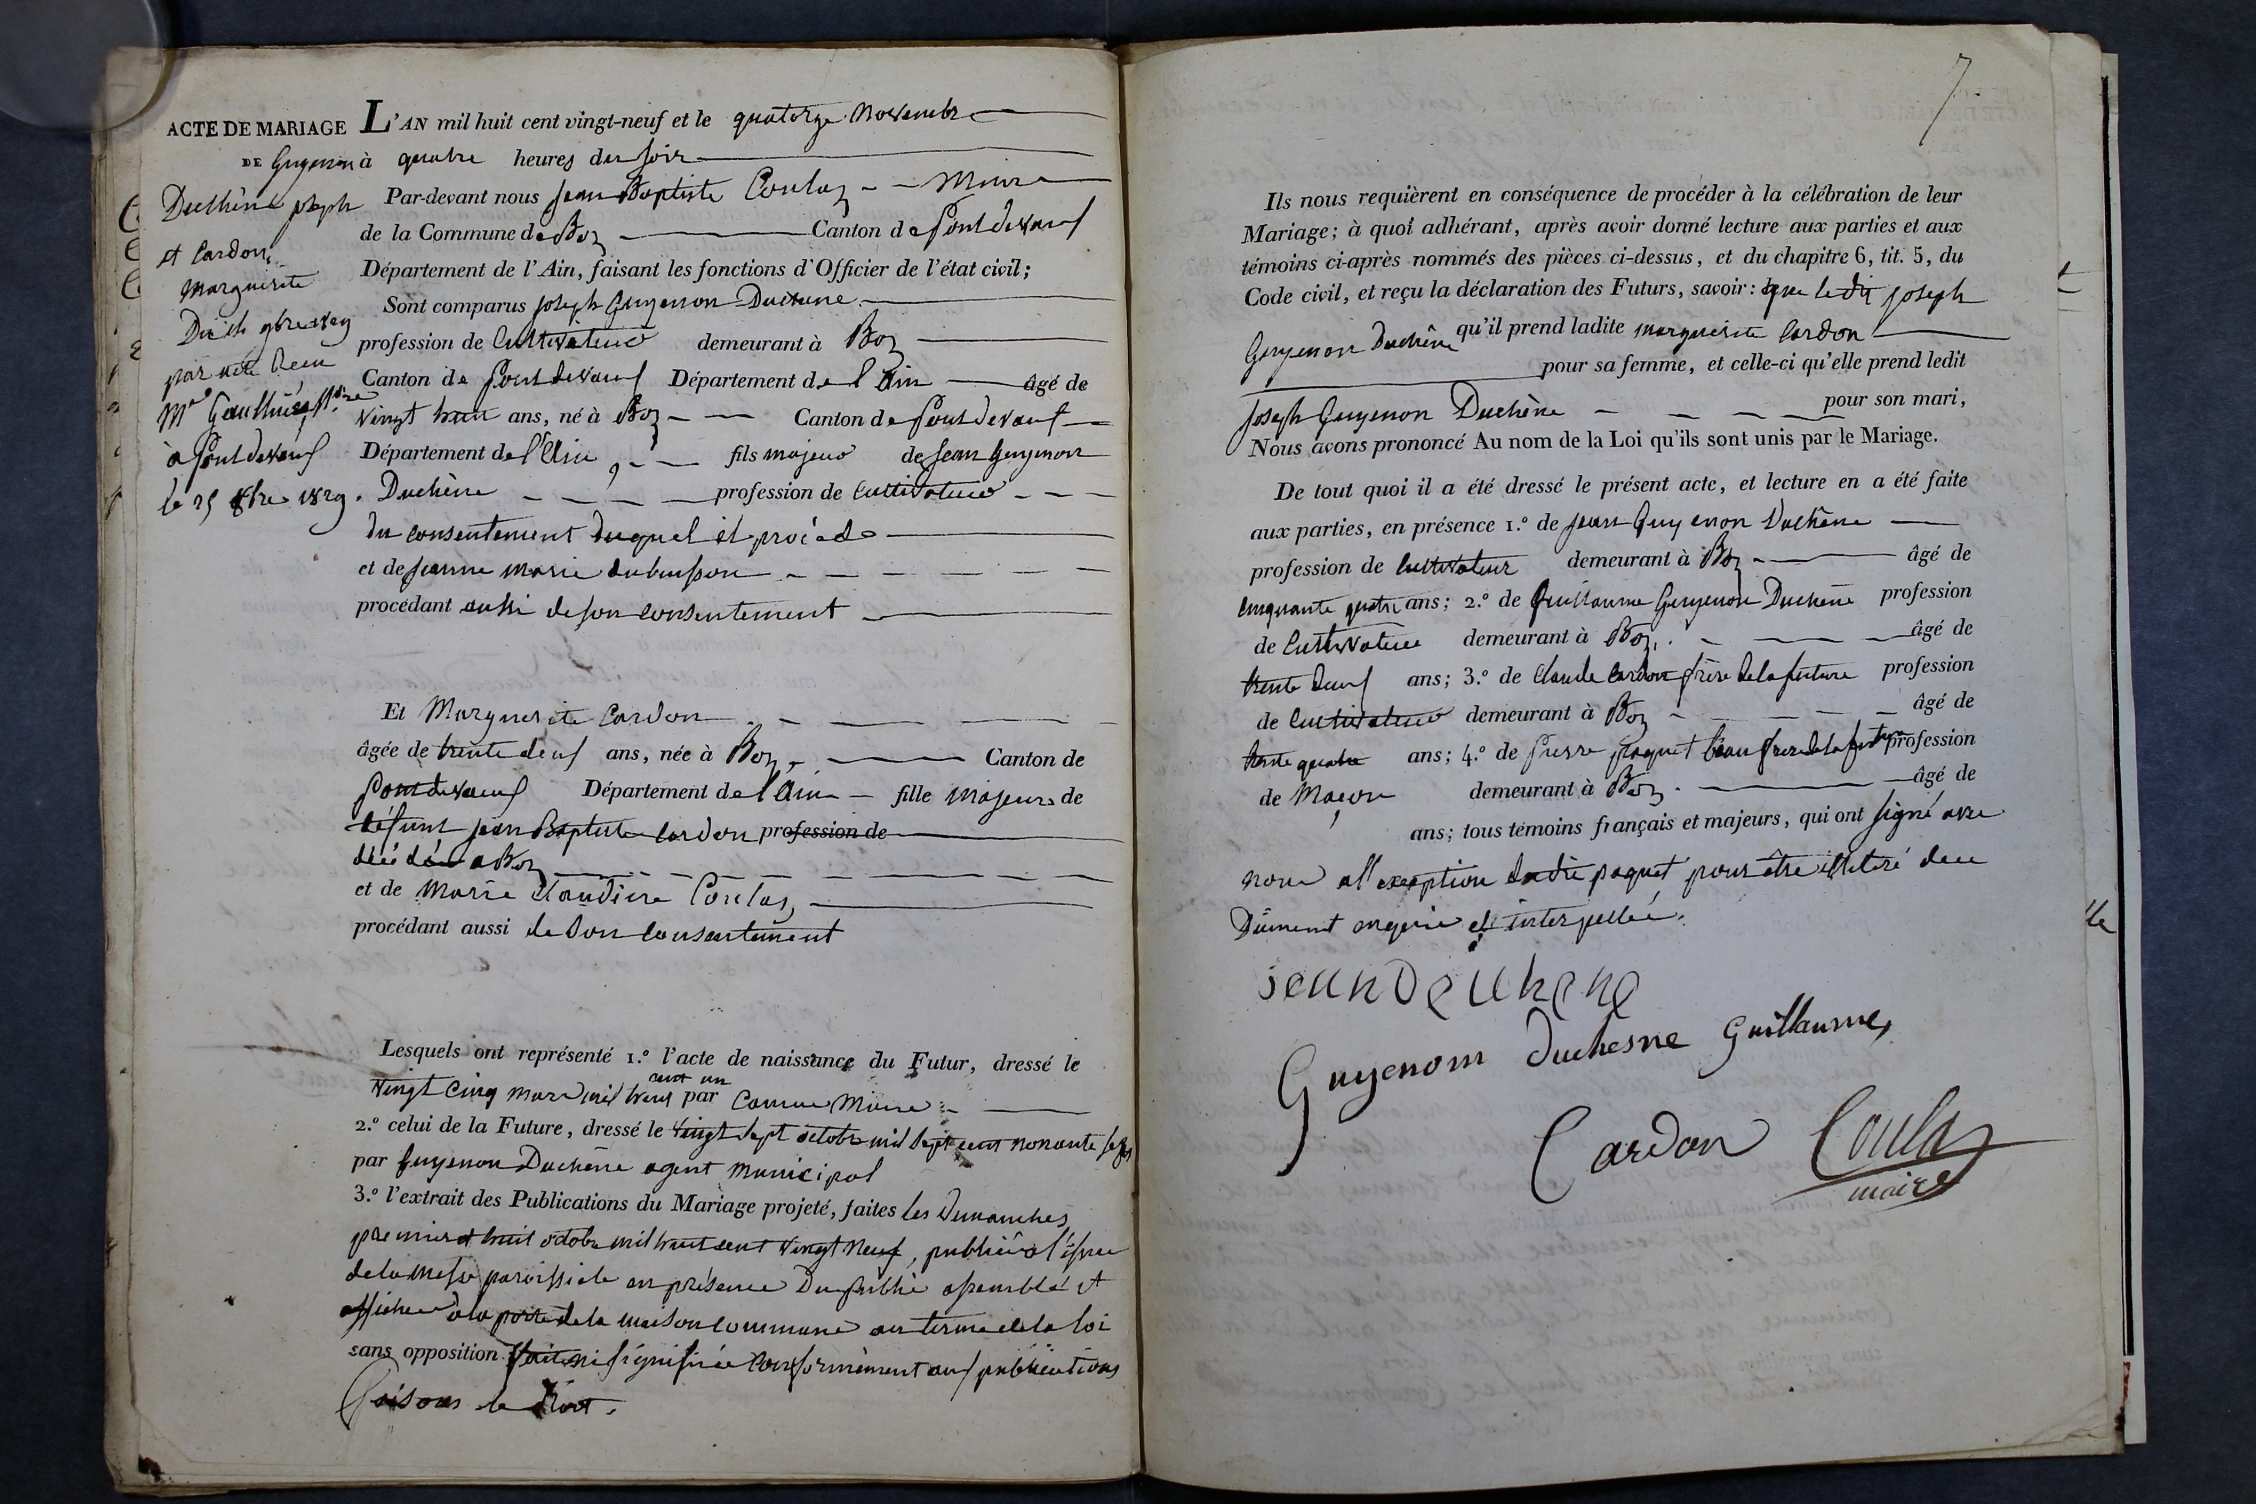 ACTE DE MARIAGE
DE Guyenon
Duchêne joseph
et Cardon
marguerite
par acte Recu
Me Gauthier Nre
à Pontdevaux
le 25 8bre 1829.
L'AN mil huit cent vingt-neuf et le quatorze Novembre
à quatre heures du soir
Par-devant nous Jean Baptiste Coulaz Maire
de la Commune de Boz Canton de Pontdevaux
Département de l'Ain, faisant les fonctions d'Officier de l'état civil;
Sont comparus joseph Guyenon Duchene
profession de Cultivateur demeurant à Boz
Canton de Pontdevaux Département de l'Ain âgé de
vingt huit ans, né à Boz Canton de Pontdevaux
Département de l'Ain, fils majeur de Jean Guyenon
Duchêne profession de Cultivateur
du consentement duquel il procéde
et de jeanne marie dubuisson
procédant aussi de son consentement
Et Marguerite Cardon
âgée de trente deux ans, née à Boz Canton de
Pontdevaux Département de l'Ain fille majeure de
défunt jean Baptiste Cardon profession de
décédé a Boz
et de Marie Claudine Coulas,
procédant aussi de son consentement
Lesquels ont représenté 1.º l'acte de naissance du Futur, dressé le
vingt cinq mars mil huit cent un par Maire
2.º celui de la Future, dressé le vingt sept octobre mil sept cent nonante seize
par Guyenon Duchêne agent municipal
3.º l'extrait des Publications du Mariage projeté, faites les Dimanches
premier et huit octobre mil huit cent vingt neuf, publié à l'issue
de la messe paroissiale en présence Du public assemblé et
affichée à la porte de la maison commune au terme de la loi
sans opposition faite ni signifiée conformément aux publications
7
Ils nous requièrent en conséquence de procéder à la célébration de leur
Mariage; à quoi adhérant, après avoir donné lecture aux parties et aux
témoins ci-après nommés des pièces ci-dessus, et du chapitre 6, tit. 5, du
Code civil, et reçu la déclaration des Futurs, savoir: que ledit joseph
Guyenon Duchêne qu'il prend ladite marguerite Cardon
pour sa femme, et celle-ci qu'elle prend ledit
joseph Guyenon Duchêne pour son mari,
Nous avons prononcé Au nom de la Loi qu'ils sont unis par le Mariage.
De tout quoi il a été dressé le présent acte, et lecture en a été faite
aux parties, en présence 1.º de jean Guyenon Duchêne
profession de Cultivateur demeurant à Boz âgé de
cinquante quatre ans; 2.º de Guillaume Guyenon Duchêne profession
de Cultivateur demeurant à Boz, âgé de
trente deux ans; 3.º de Claude Cardon frère de la future profession
de Cultivateur demeurant à Boz âgé de
trente quatre ans; 4.º de Pierre paquet beau frere de la future profession
de Maçon demeurant à Boz âgé de
ans; tous témoins français et majeurs, qui ont signé avec
nous a l'exception dudit paquet pour être illitéré de ce
Dûment enquis et interpellé.
jean Deuhene
Guyenom duchesne Guillaume,
Cardon Coulaz
maire